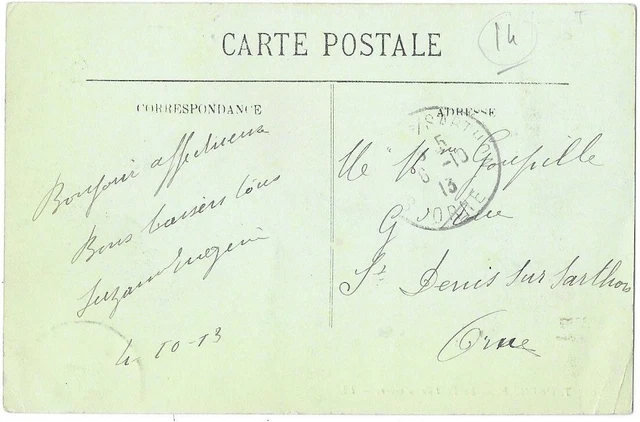 CARTE POSTALE
14
CORRESPONDANCE
ADRESSE
Bonjour affectueux
Bons baisers à tous
Suzanne Eugénie
4-10-13
Mr Mme Goupille
5-10
13
ORNE
St Denis sur Sarthon
Orne